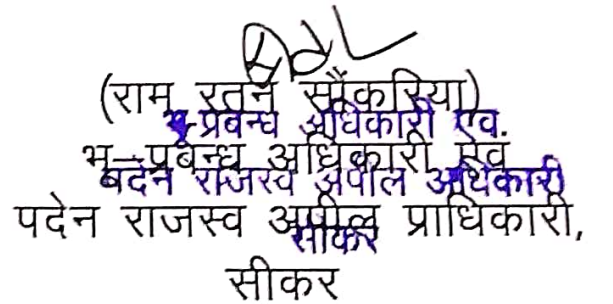 (राम रतन सौंकरिया)
भू-प्रबन्ध अधिकारी एवं.
भू-प्रबन्ध अधिकारी एवं
पदेन राजस्व अपील अधिकारी
पदेन राजस्व अपील प्राधिकारी,
सीकर
सीकर